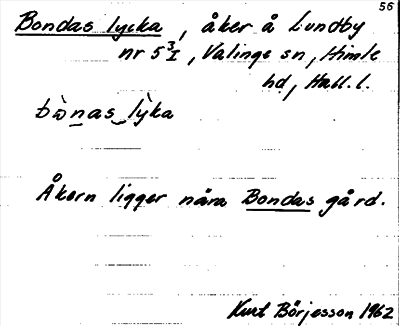 56
Bondas lycka, åker å Lundby
nr 5 3/I, Valinge sn, Himle
hd, Hall. l.
bɷ̀nas lỳka
Åkern ligger nära Bondas gård.
Kurt Börjesson 1962